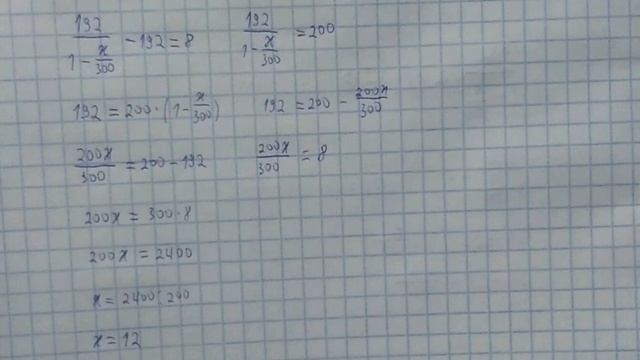 192/(1 - x/300) - 192 = 8     192/(1 - x/300) = 200
192 = 200 · (1 - x/300)     192 = 200 - 200x/300
200x/300 = 200 - 192     200x/300 = 8
200x = 300 · 8
200x = 2400
x = 2400 : 200
x = 12